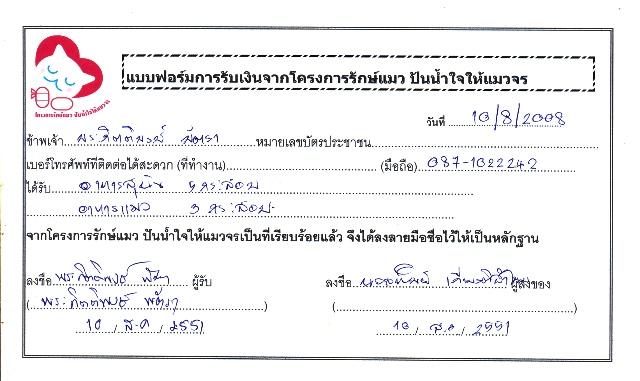 โครงการรักษ์แมว ปันน้ำใจให้แมวจร
แบบฟอร์มการรับเงินจากโครงการรักษ์แมว ปันน้ำใจให้แมวจร
วันที่ 10/8/2008
ข้าพเจ้า พระกิตติพงษ์ หมายเลขบัตรประชาชน
เบอร์โทรศัพท์ที่ติดต่อได้สะดวก (ที่ทำงาน) (มือถือ) 087-1022242
ได้รับ อาหารสุนัข 5 กระสอบ
อาหารแมว 3 กระสอบ
จากโครงการรักษ์แมว ปันน้ำใจให้แมวจรเป็นที่เรียบร้อยแล้ว จึงได้ลงลายมือชื่อไว้ให้เป็นหลักฐาน
ลงชื่อ พระกิตติพงษ์ ผู้รับ ลงชื่อ ผู้ส่งของ
( พระกิตติพงษ์ ) ( )
10 / ส.ค / 2551 10 / ส.ค / 2551